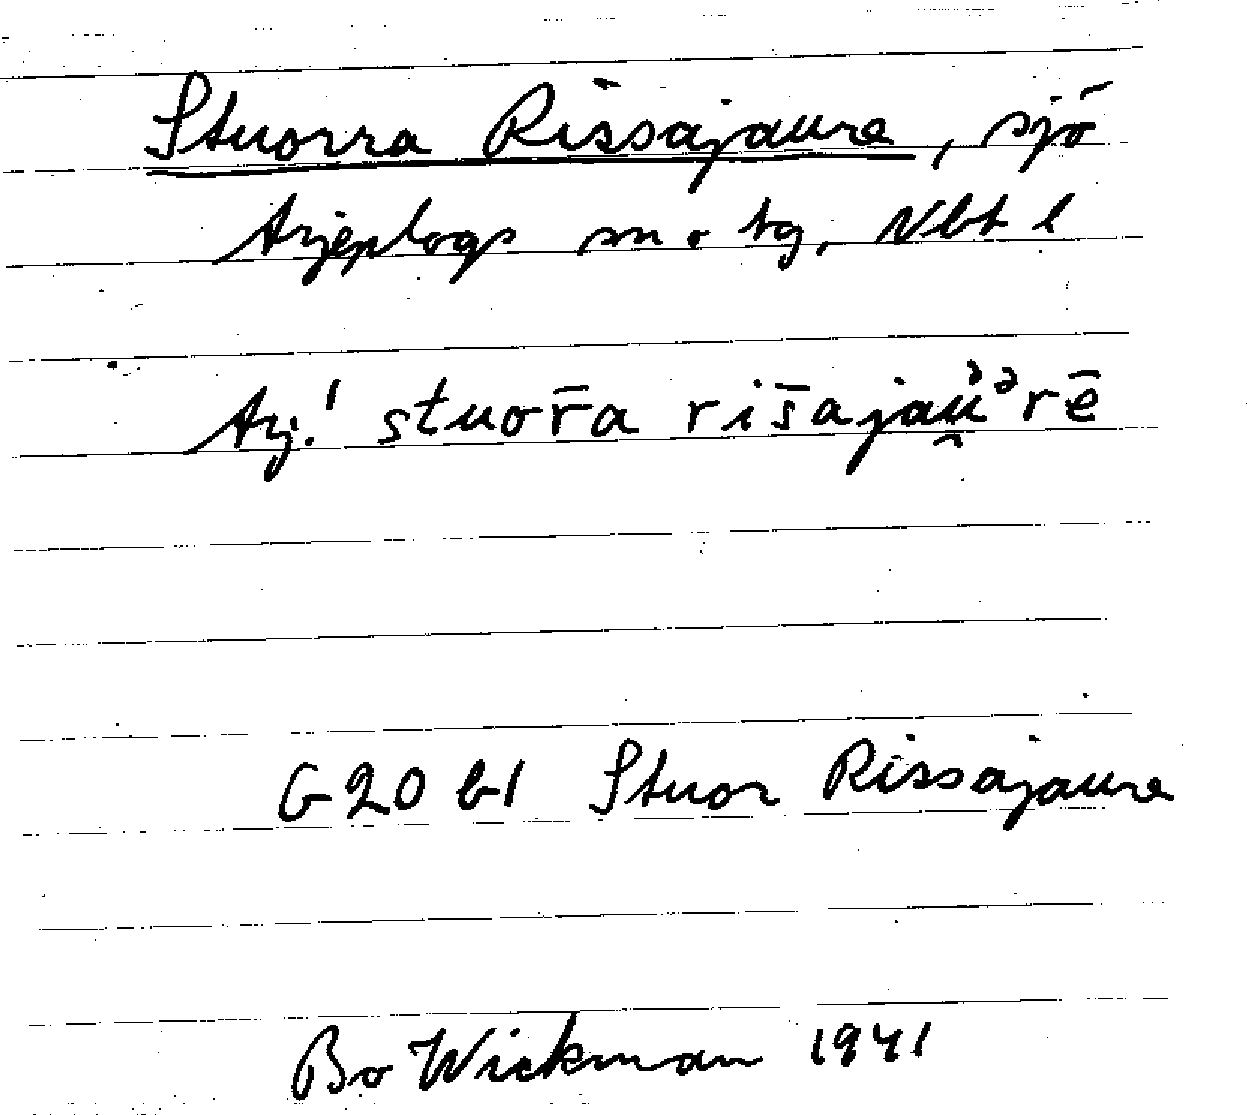 Stuorra Rissajaure, sjö
Arjeplogs sn o tg, Nbt l
Arj.! stuor̄a ris̄ajau̯ᵊᵊrē
G20 b1 Stuor Rissajaure
Bo Wickman 1941